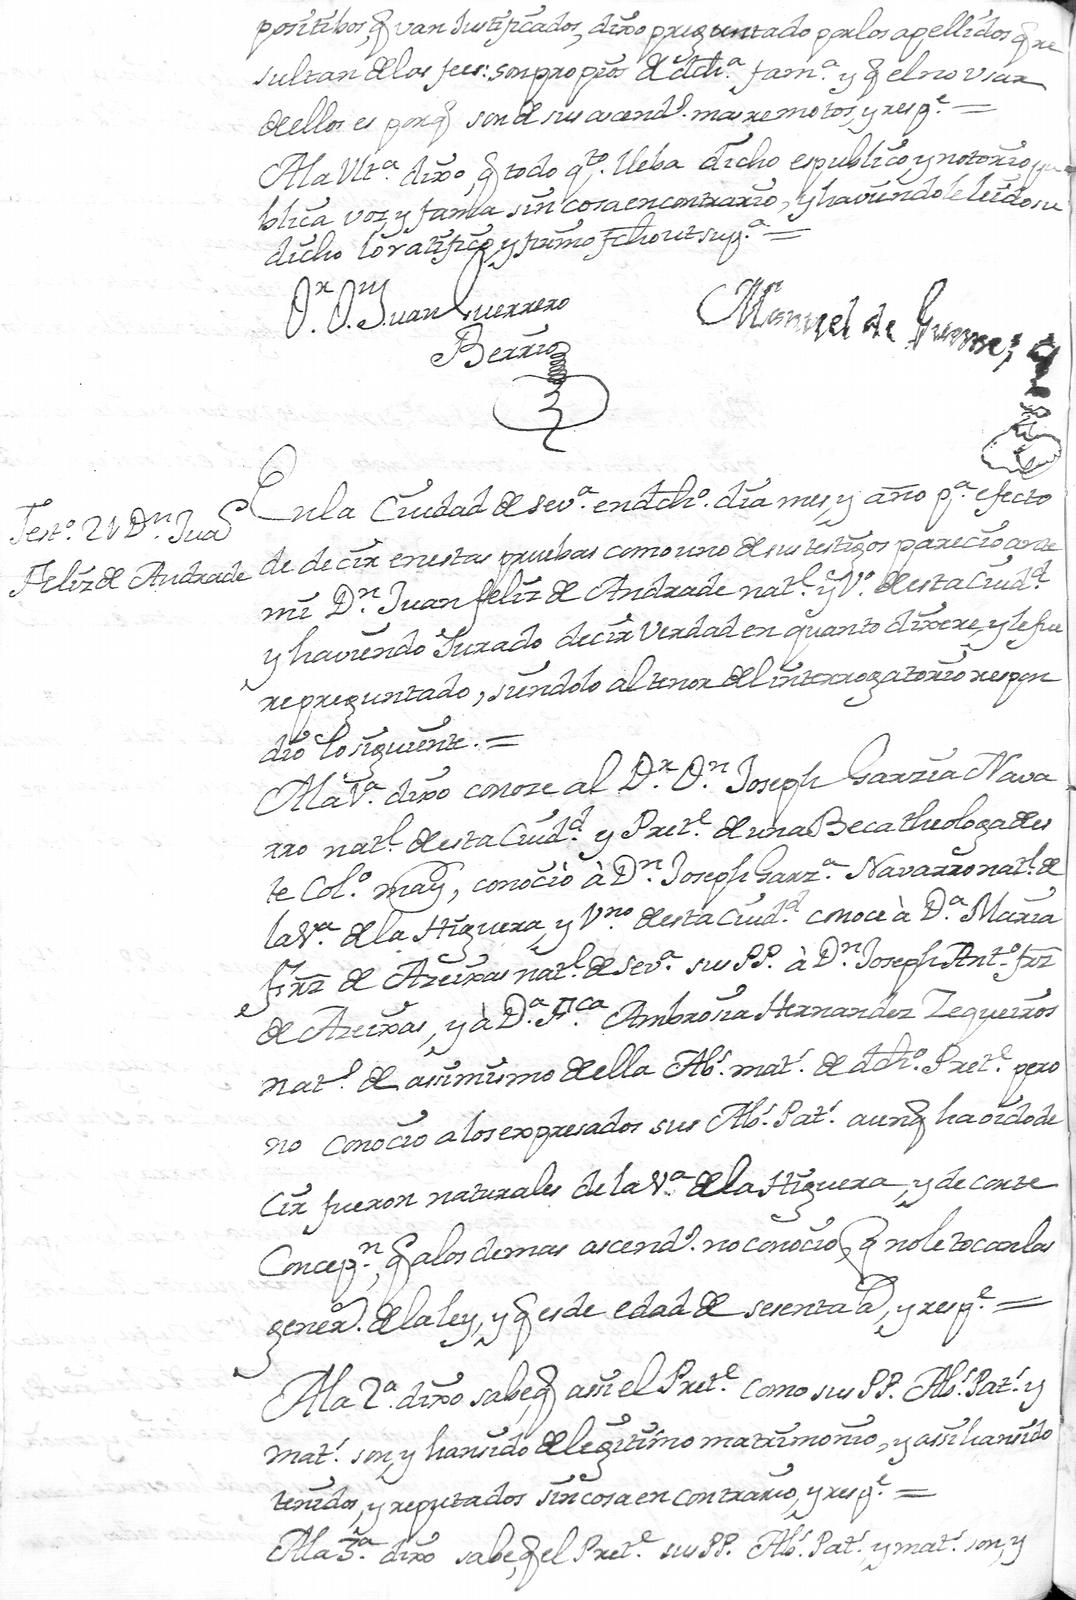 positibos, q̃ van Justificados, dixo preguntado por los apellidos q̃ re
sultan de las fees: son propios de dcħa. fama. y q̃ el no usar
de ellos es porq̃ son de sus ascends. mas remotos, y respe. =
A la Ulta. dixo, q̃ todo qto. lleba dicho es publico, y notorio, pu
blica voz, y fama sin cosa en contrario, y haviendole leido su
dicho lo ratifico, y firmo fcho ut supa. =
Dr. Dn. Juan Guerrero
Berrio
Manuel de
Testo. 21 Dn. Juan
Feliz de Andrade
En la Ciudad de Seva. en dcħo. dia mes, y año pa. efecto
de decir en estas pruebas como uno de sus testigos parecio ante
mi Dn. Juan feliz de Andrade natl. y Vo. de esta Ciudd.
y haviendo Jurado decir Verdad en quanto dixere, y le fue
repreguntado, siendolo al tenor del interrogatorio respon
dio lo siguiente. =
A la 1a. dixo conoze al Dr. Dn. Joseph Garzia Nava
rro natl. de esta Ciudd. y Prete. de una Beca theologa de es
te Colo. mayr, conociò à Dn. Joseph Garza. Navarro natl. de
la Va. de la Higuera, y Vno. de esta Ciudd. conoce à Da. Maria
frrz de Azeixas natl. de Seva. sus PP. à Dn. Joseph Anto. frz
de Azeixas, y à Da. Fca. Ambrosia Hernandez Zequeiros
natl. de assimismo de ella Abs. mats. de dcħo. Prete. pero
no conocio a los expresados sus Abs. Pats. aunq̃ ha oido de
cir fueron naturales de la Va. de la Higuera, y de corte
Concepn, q̃ a los demas ascends. no conocio, q̃ no le tocan las
geners. de la ley, y q̃ es de edad de sesenta as, y respe. =
A la 2a. dixo sabe, q̃ assi el Prete. como sus PP. Abs. Pats. y
mats. son, y han sido de legitimo matrimonio, y assi han sido
tenidos, y reputados sin cosa en contrario, y respe. =
A la 3a. dixo sabe, q̃ el Prete. sus PP. Abs. Pats. y mats. son, y